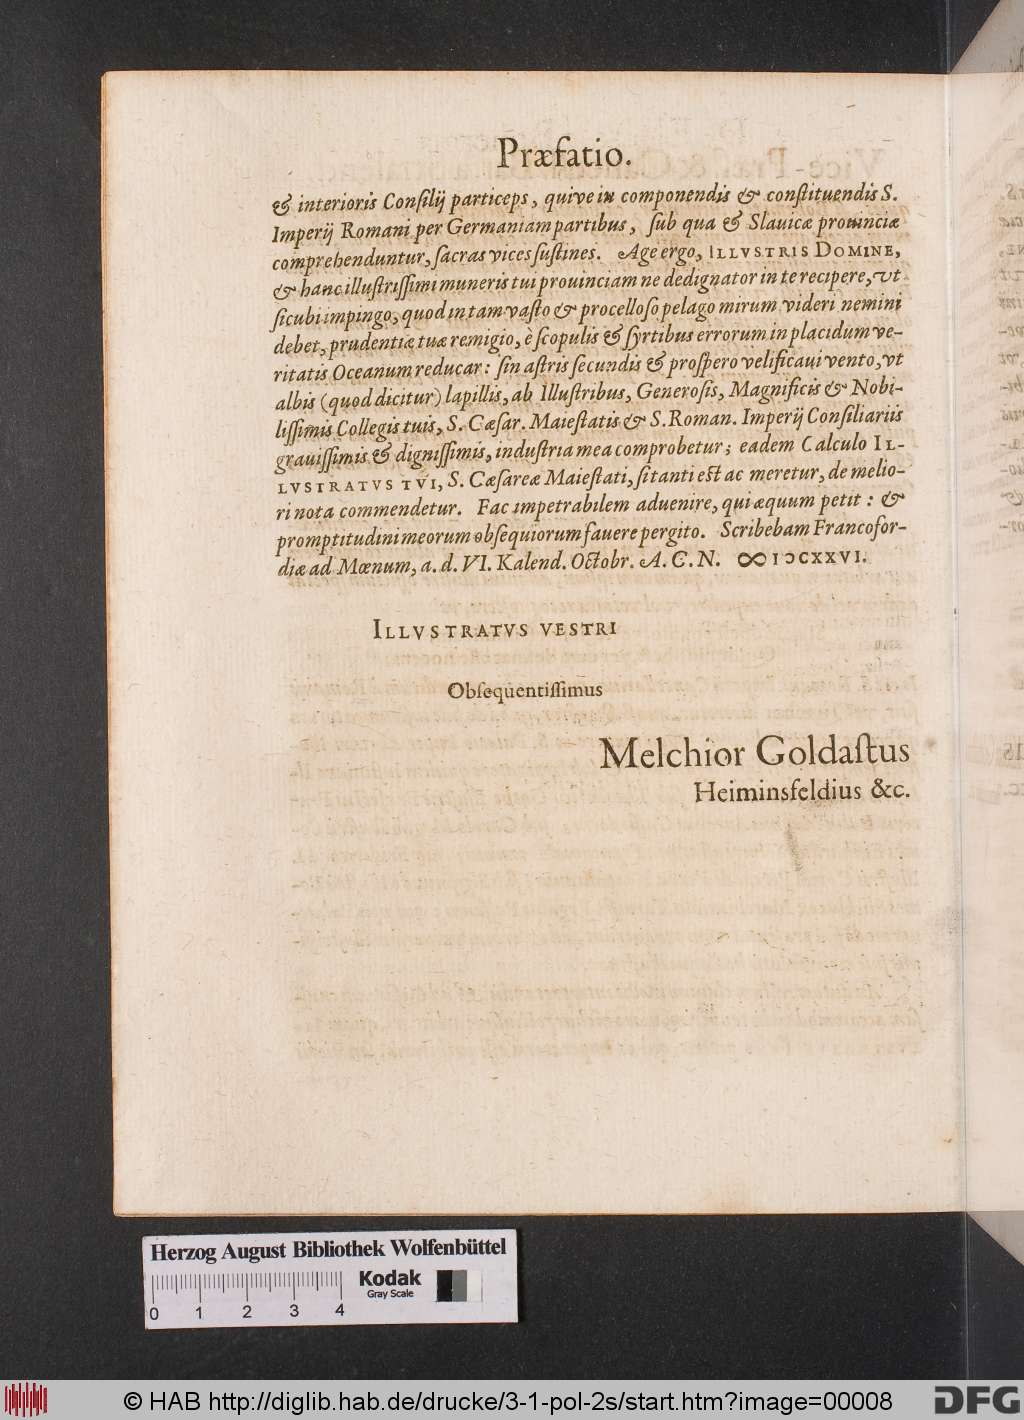 Præfatio.
& interioris Consilij particeps, quive in componendis & constituendis S.
Imperij Romani per Germaniam partibus, sub qua & Slauicæ prouinciæ
comprehenduntur, sacras vices sustines. Age ergo, ILLVSTRIS DOMINE,
& hanc illustrissimi muneris tui prouinciam ne dedignator in te recipere, vt
sicubi impingo, quod in tam vasto & procelloso pelago mirum videri nemini
debet, prudentiæ tuæ remigio, è scopulis & syrtibus errorum in placidum ve-
ritatis Oceanum reducar: sin astris secundis & prospero velificaui vento, vt
albis (quod dicitur) lapillis, ab Illustribus, Generosis, Magnificis & Nobi-
lissimis Collegis tuis, S. Cæsar. Maiestatis & S. Roman. Imperij Consiliariis
grauissimis & dignissimis, industria mea comprobetur; eadem Calculo IL-
LVSTRATVS TVI, S. Cæsareæ Maiestati, si tanti est ac meretur, de melio-
ri nota commendetur. Fac impetrabilem aduenire, qui æquum petit: &
promptitudini meorum obsequiorum fauere pergito. Scribebam Francofor-
diæ ad Mœnum, a. d. VI. Kalend. Octobr. A. C. N. ∞ IƆCXXVI.
ILLVSTRATVS VESTRI
Obsequentissimus
Melchior Goldastus
Heiminsfeldius &c.
Herzog August Bibliothek Wolfenbüttel
Kodak
Gray Scale
0 1 2 3 4
© HAB http://diglib.hab.de/drucke/3-1-pol-2s/start.htm?image=00008
DFG